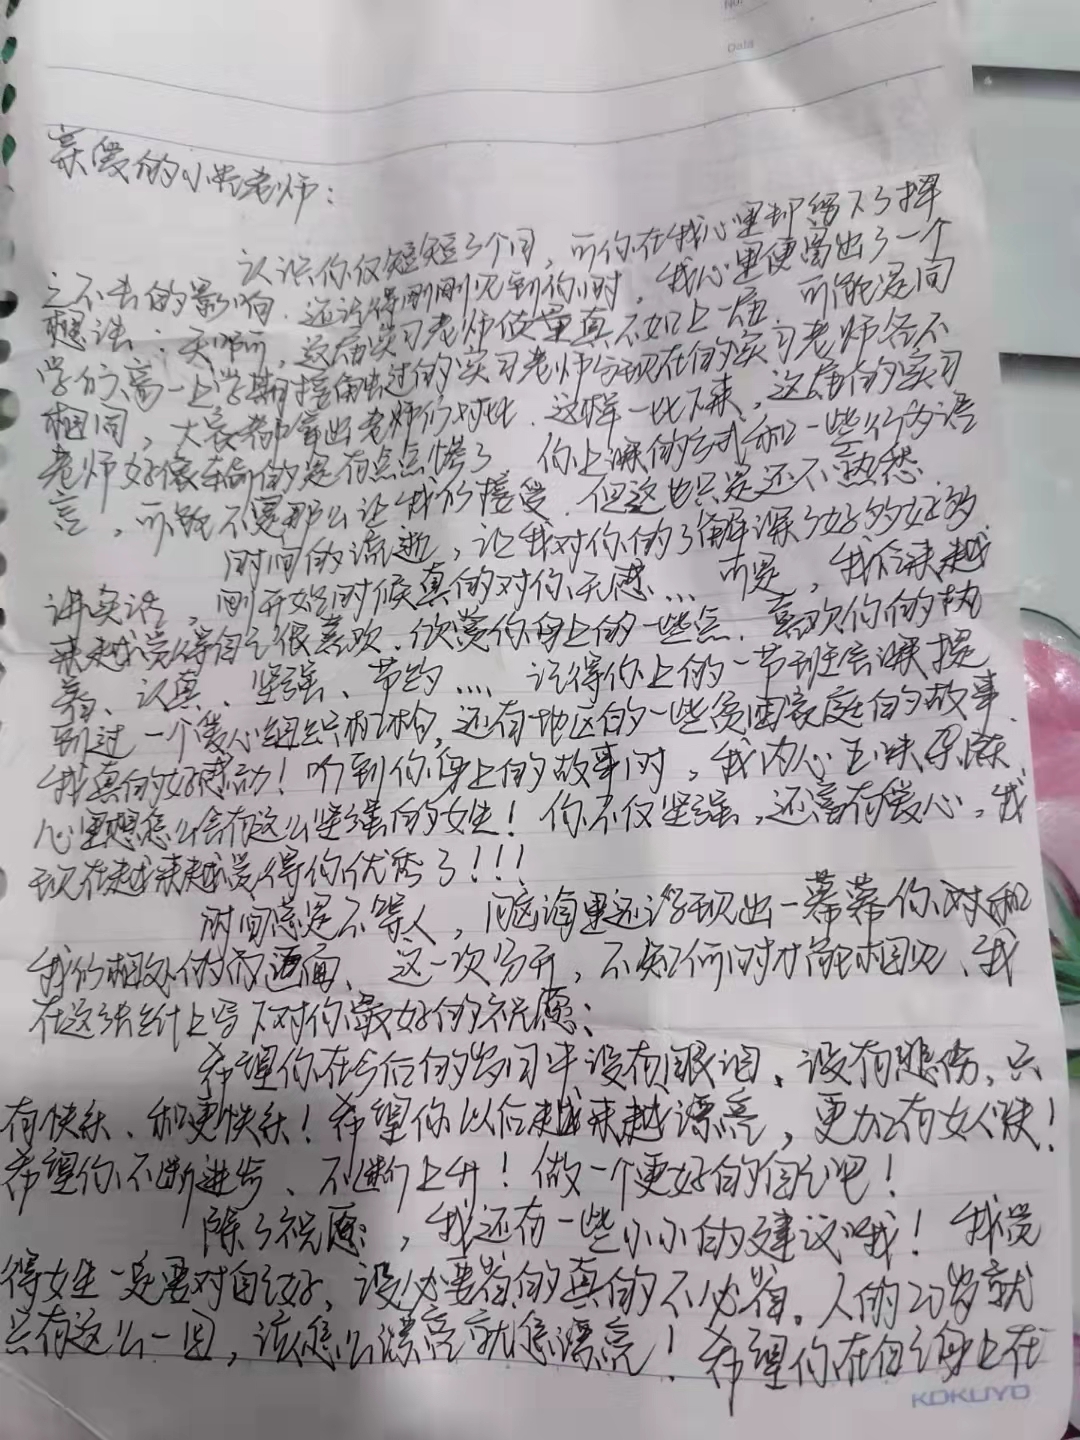 No.
Data
亲爱的小 老师：
认识你仅短短3个月，听你在我心里却留下了挥
之不去的影响．还记得刚刚见到你时，我心里便冒出了一个
想法：天啊，这届实习老师质量真不如上一届．可能是同
学们高一上学期接触过的实习老师与现在的实习老师各不
相同，大家都拿出老师们对比．这样一比下来，这届的实习
老师好像 的是有点点 了 你上课的方式和一些行为语
言，可能不是那么让我们接受．但这也只是还不熟悉．
时间的流逝，让我对你的了解深了好多好多
讲实话，刚开始时候真的对你无感… 可是，我后来越
来越觉得自己很喜欢、欣赏你身上的一些点．喜欢你的执
着、认真、坚强、节约…．记得你上的一节班会课提
到过一个爱心组织机构，还有地区的一些贫困家庭的故事．
我真的好感动！听到你身上的故事时，我内心五味杂陈，
心里想怎么会有这么坚强的女生！你不仅坚强，还富有爱心，我
现在越来越觉得你优秀了！！！
时间总是不等人，脑海里还浮现出一幕幕你对和
我们相处的 画面、这一次分开，不知何时才能相见、我
在这张纸上写下对你最好的祝愿：
希望你在今后的岁月中没有眼泪、没有悲伤、只
有快乐、和更快乐！希望你以后越来越漂亮，更加有女人味！
希望你不断进步、不断上升！做一个更好的自己吧！
除了祝愿，我还有一些小小的建议哦！我觉
得女生一定要对自己好，没必要省的真的不必省。人的20岁就
只有这么一回，该怎么漂亮就怎漂亮！希望你在自己身上在
KOKUYO